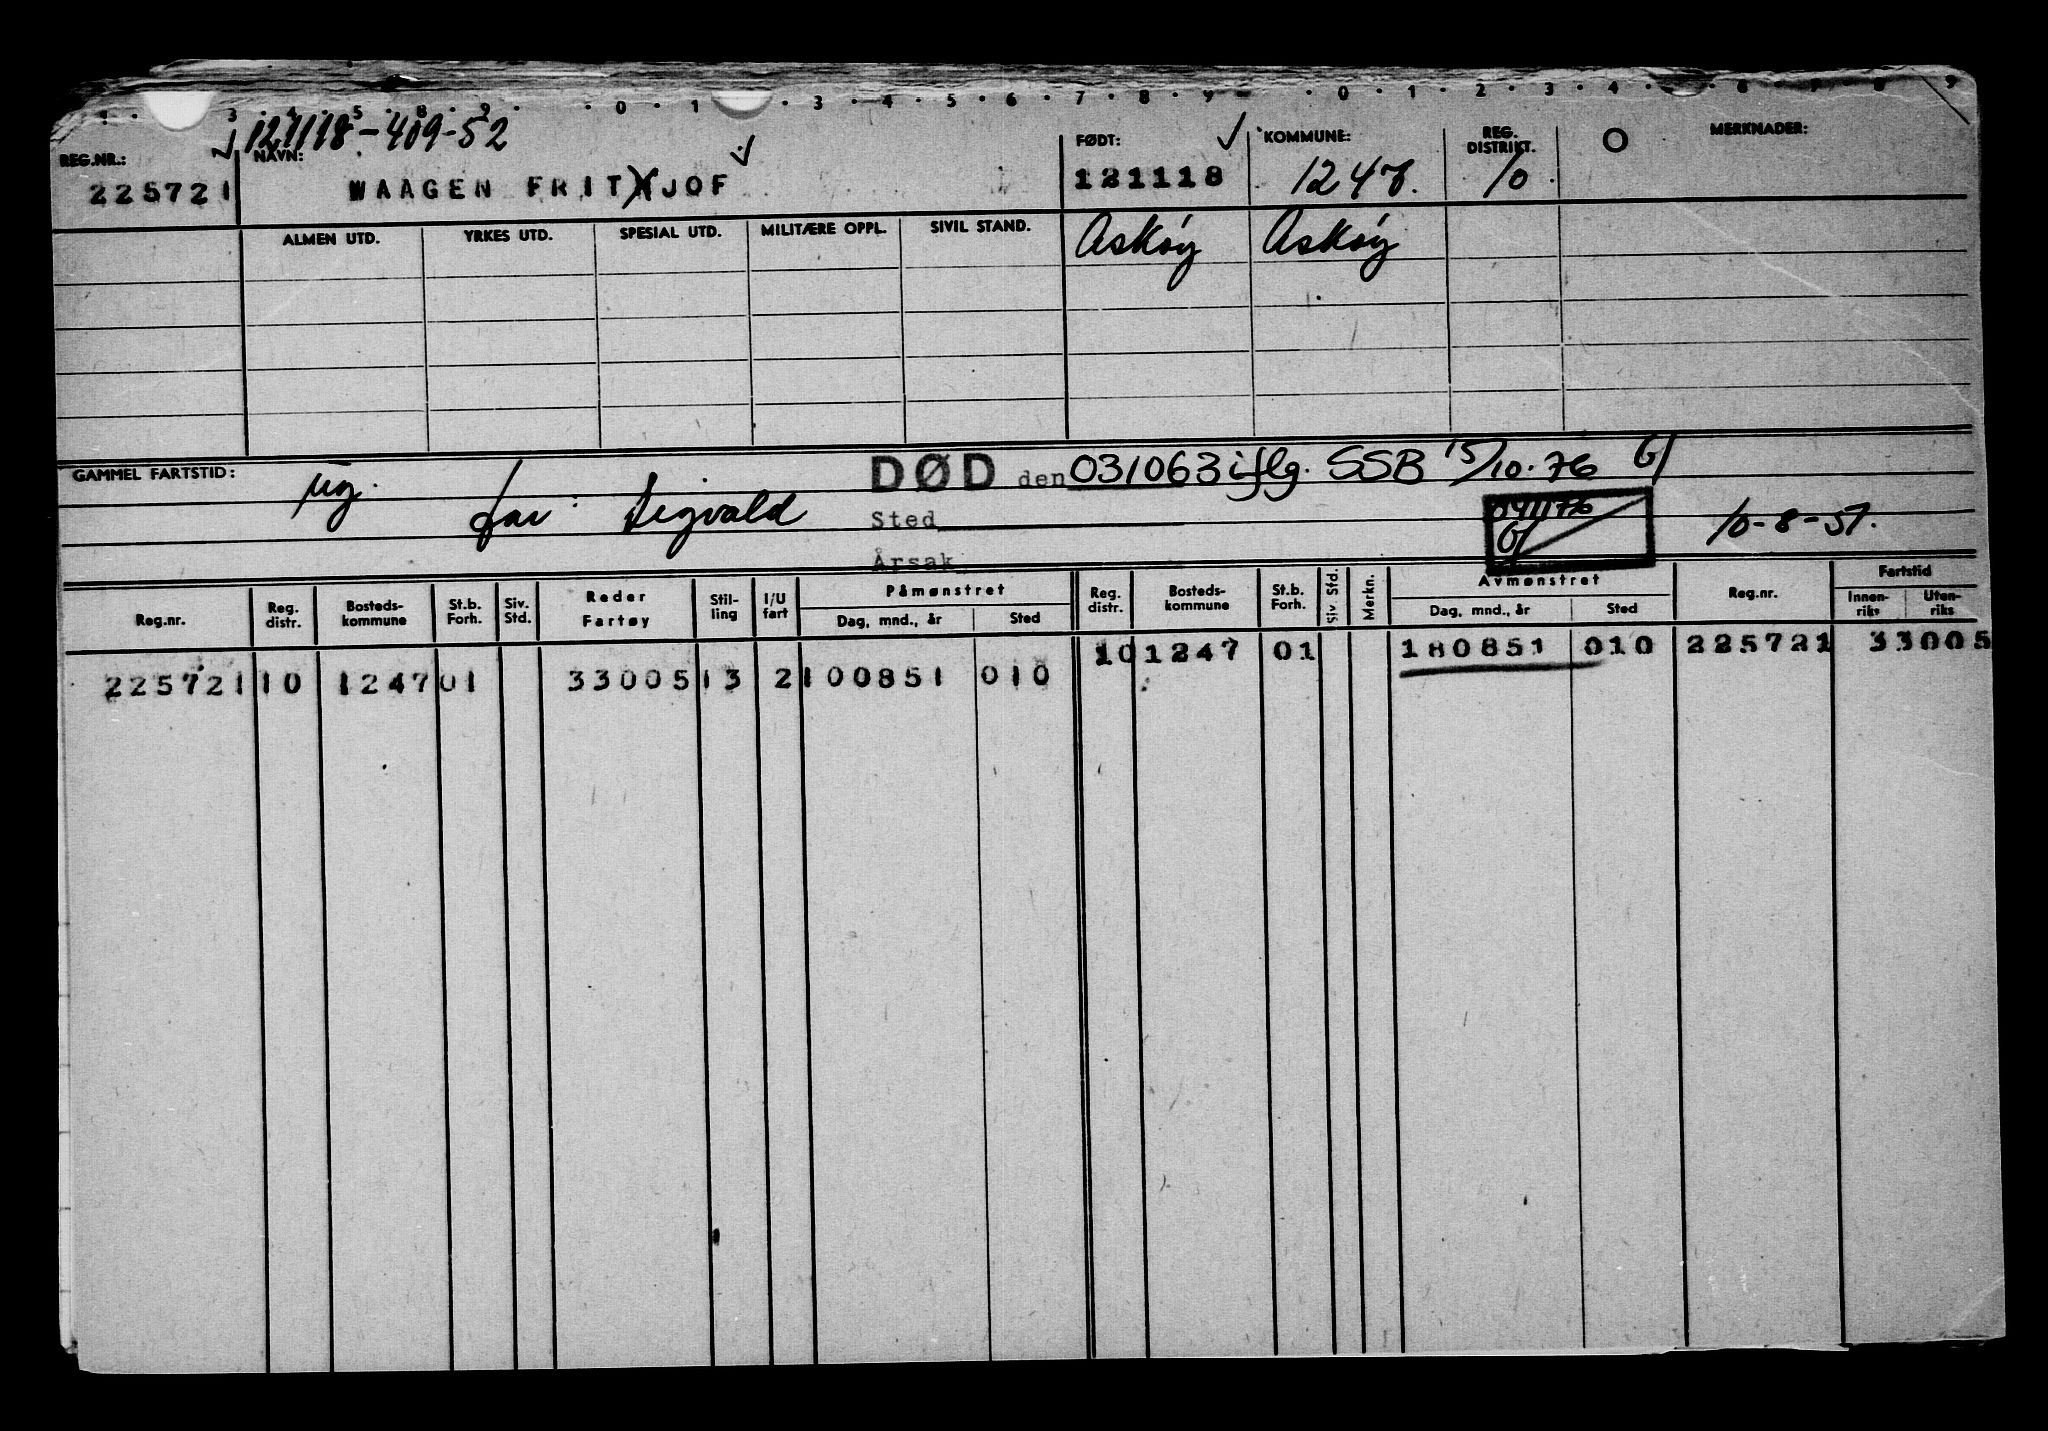 121118-409-52
REG.NR.: NAVN: FØDT: KOMMUNE: REG. DISTRIKT. MERKNADER:
225721 WAAGEN FRITHJOF 121118 1247. 10
ALMEN UTD. YRKES UTD. SPESIAL UTD. MILITÆRE OPPL. SIVIL STAND. Askøy Askøy
GAMMEL FARTSTID: DØD den 031063 iflg. SSB 15/10-76
far: Sigvald
Sted 10-8-51.
Årsak
Reg.nr. Reg. distr. Bosteds-kommune St.b. Forh. Siv. Std. Reder Fartøy Stil-ling I/U fart Påmønstret Dag, mnd., år Sted Reg. distr. Bosteds-kommune St.b. Forh. Siv Std. Merkn. Avmønstret Dag, mnd., år Sted Reg.nr. Fartstid Innen-riks Uten-riks
225721 10 1247 01 33005 13 2 100851 010 10 1247 01 180851 010 225721 33005